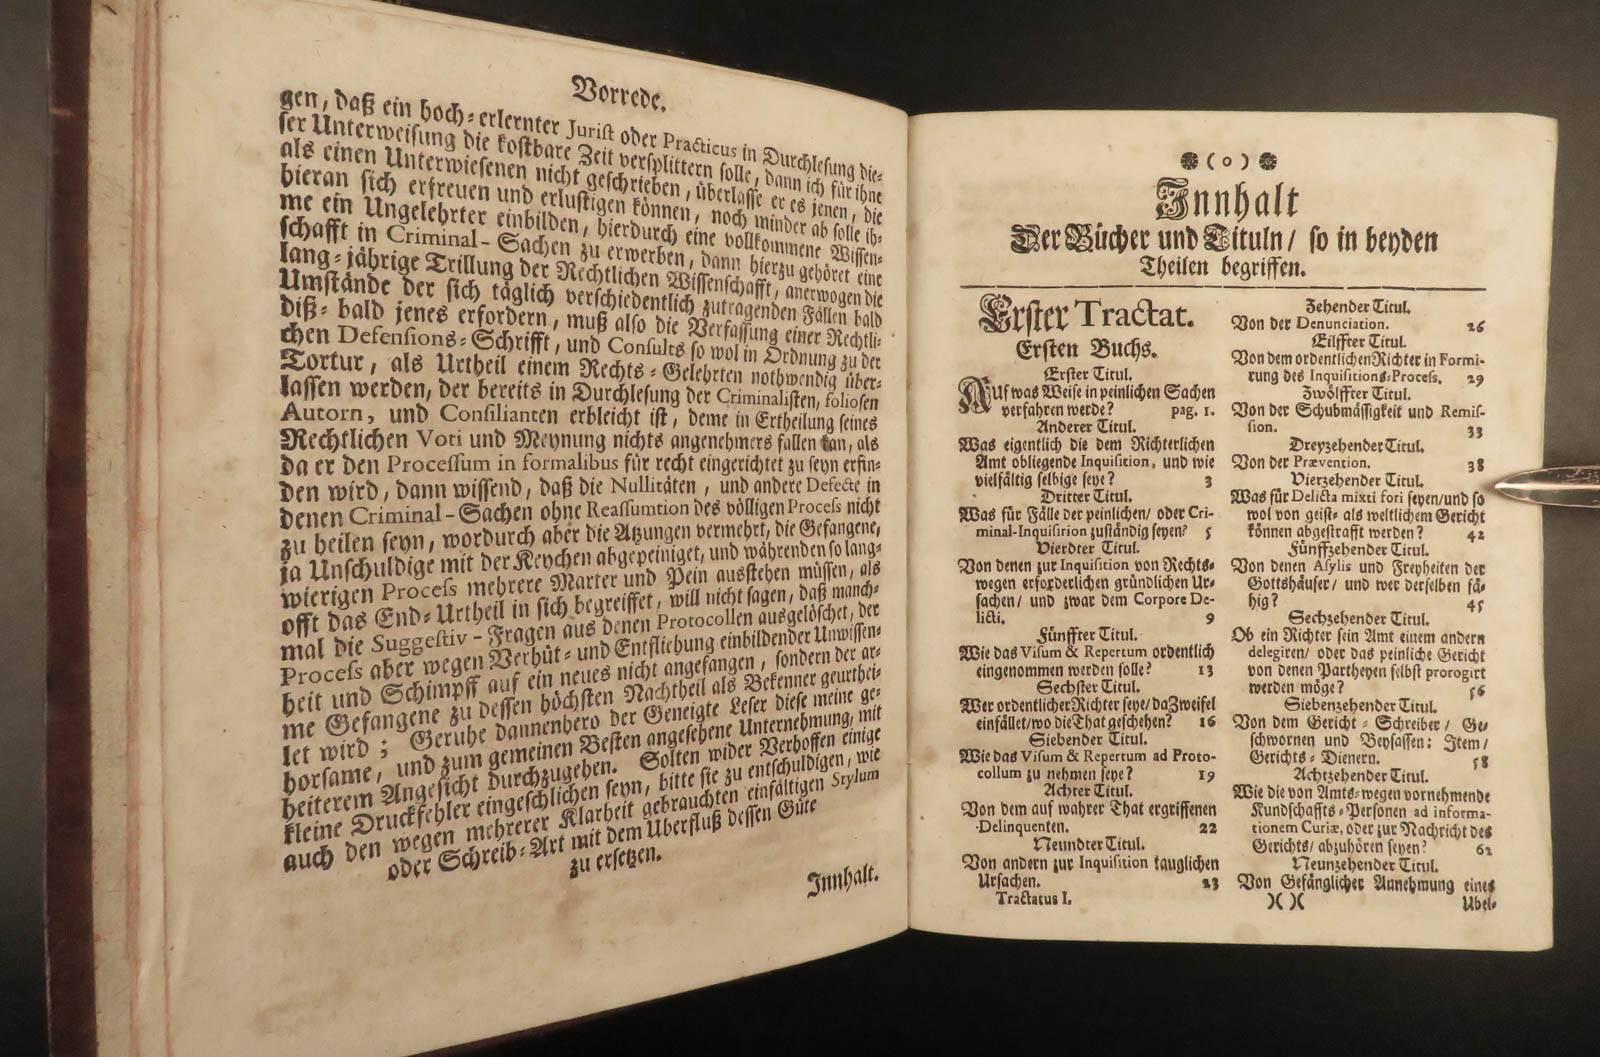 Vorrede.
gen, daß ein hoch-erlernter Jurist oder Practicus in Durchlesung die-
ser Unterweisung die kostbare Zeit versplittern solle, dann ich für ihne
als einen Unterwiesenen nicht geschrieben, überlasse er es jenen, die
hieran sich erfreuen und erlustigen können, noch minder ab solle ih-
me ein Ungelehrter einbilden, hierdurch eine vollkommene Wissen-
schafft in Criminal-Sachen zu erwerben, dann hierzu gehöret eine
lang-jährige Trillung der Rechtlichen Wissenschafft, anerwogen die
Umstände der sich täglich verschiedentlich zutragenden Fällen bald
diß- bald jenes erfordern, muß also die Verfassung einer Rechtli-
chen Defensions-Schrifft, und Consults so wol in Ordnung zu der
Tortur, als Urtheil einem Rechts-Gelehrten nothwendig über-
lassen werden, der bereits in Durchlesung der Criminalisten, foliosen
Autorn, und Consilianten erbleicht ist, deme in Ertheilung seines
Rechtlichen Voti und Meynung nichts angenehmers fallen kan, als
da er den Processum in formalibus für recht eingerichtet zu seyn erfin-
den wird, dann wissend, daß die Nullitäten, und andere Defecte in
denen Criminal-Sachen ohne Reassumtion des völligen Process nicht
zu heilen seyn, wordurch aber die Atzungen vermehrt, die Gefangene,
ja Unschuldige mit der Keychen abgepeiniget, und währenden so lang-
wierigen Process mehrere Marter und Pein ausstehen müssen, als
offt das End-Urtheil in sich begreiffet, will nicht sagen, daß manch-
mal die Suggestiv-Fragen aus denen Protocollen ausgelöschet, der
Process aber wegen Verhüt- und Entfliehung einbildender Unwissen-
heit und Schimpff auf ein neues nicht angefangen, sondern der ar-
me Gefangene zu dessen höchsten Nachtheil als Bekenner geurthei-
let wird; Geruhe dannenhero der Geneigte Leser diese meine ge-
horsame, und zum gemeinen Besten angesehene Unternehmung, mit
heiterem Angesicht durchzugehen. Solten wider Verhoffen einige
kleine Druckfehler eingeschlichen seyn, bitte sie zu entschuldigen, wie
auch den wegen mehrerer Klarheit gebrauchten einfältigen Stylum
oder Schreib-Art mit dem Uberfluß dessen Güte
zu ersetzen.
Innhalt.
(o)
Innhalt
Der Bücher und Tituln/ so in beyden
Theilen begriffen.
Erster Tractat.
Ersten Buchs.
Erster Titul.
AUf was Weise in peinlichen Sachen
verfahren werde? pag. 1.
Anderer Titul.
Was eigentlich die dem Richterlichen
Amt obliegende Inquisition, und wie
vielfältig selbige seye? 3
Dritter Titul.
Was für Fälle der peinlichen/ oder Cri-
minal-Inquisition zuständig seyen? 5
Vierdter Titul.
Von denen zur Inquisition von Rechts-
wegen erforderlichen gründlichen Ur-
sachen/ und zwar dem Corpore De-
licti. 9
Fünffter Titul.
Wie das Visum & Repertum ordentlich
eingenommen werden solle? 13
Sechster Titul.
Wer ordentlicher Richter seye/ da Zweifel
einfället/ wo die That geschehen? 16
Siebender Titul.
Wie das Visum & Repertum ad Proto-
collum zu nehmen seye? 19
Achter Titul.
Von dem auf wahrer That ergriffenen
Delinquenten. 22
Neundter Titul.
Von andern zur Inquisition tauglichen
Ursachen. 23
Tractatus I.
Zehender Titul.
Von der Denunciation. 26
Eilffter Titul.
Von dem ordentlichen Richter in Formi-
rung des Inquisitions-Process. 29
Zwölffter Titul.
Von der Schubmässigkeit und Remis-
sion. 33
Dreyzehender Titul.
Von der Prævention. 38
Vierzehender Titul.
Was für Delicta mixti fori seyen/ und so
wol von geist- als weltlichem Gericht
können abgestrafft werden? 42
Fünffzehender Titul.
Von denen Asylis und Freyheiten der
Gottshäuser/ und wer derselben fä-
hig? 45
Sechzehender Titul.
Ob ein Richter sein Amt einem andern
delegiren/ oder das peinliche Gericht
von denen Partheyen selbst prorogirt
werden möge? 56
Siebenzehender Titul.
Von dem Gericht-Schreiber/ Ge-
schwornen und Beysassen: Item/
Gerichts-Dienern. 58
Achtzehender Titul.
Wie die von Amts-wegen vornehmende
Kundschaffts-Personen ad informa-
tionem Curiæ, oder zur Nachricht des
Gerichts/ abzuhören seyen? 62
Neunzehender Titul.
Von Gefänglicher Annehmung eines
)( )( Ubel-